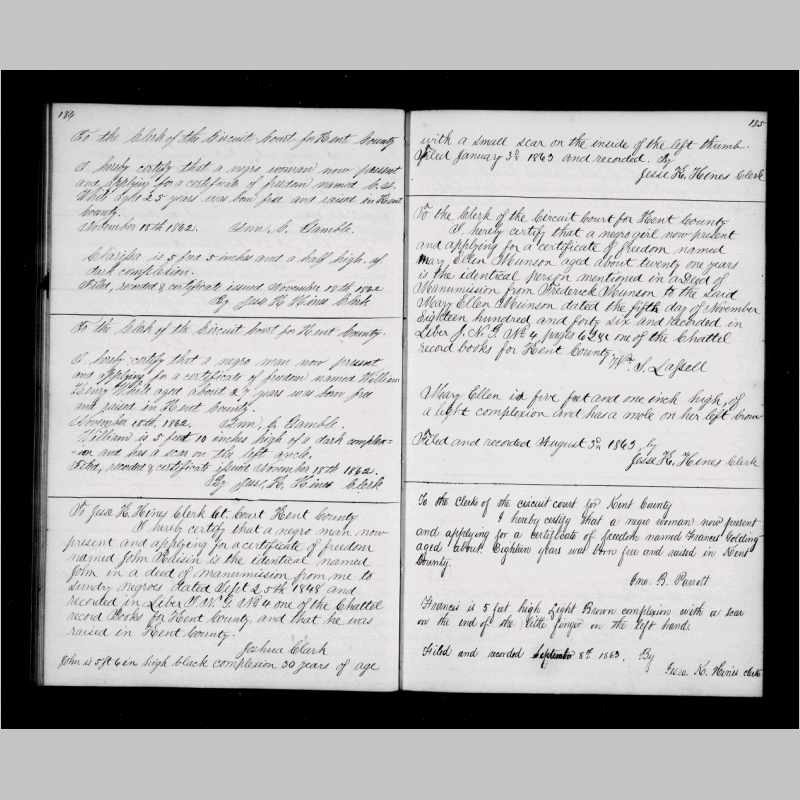 184
To the Clerk of the Circuit Court for Kent County
I hereby certify that a negro woman now present
and applying for a certificate of freedom named
White aged 25 years was born free and raised in Kent
County.
November 18th 1862. Ann C. Gamble.
Clarissa is 5 feet 5 inches and a half high, of
dark completion.
Filed, recorded & certificate issued November 18th 1862
By Jesse K. Hines Clerk
To the Clerk of the Circuit Court for Kent County.
I hereby certify that a negro man now present
and applying for a certificate of freedom named William
Henry White aged about years was born free
and raised in Kent County.
November 18th, 1862. Ann, C. Gamble.
William is 5 feet 10 inches high of a dark complex=
=ion and has a scar on the left ancle.
Filed, recorded & certificate issued November 18th 1862.
By Jesse, K. Hines Clerk
To Jesse K. Hines Clerk Ct. Court Kent County
I hereby certify that a negro man now
present and applying for a certificate of freedom
named John is the identical named
John in a deed of manumission from me to
sundry negroes dated Sept 25th 1848 and
recorded in Liber J. N. G. No 4 one of the Chattel
record Books for Kent County and that he was
raised in Kent County.
Joshua Clark
John is 5 ft 6 in high black complexion 30 years of age
185
with a small scar on the inside of the left thumb.
Filed January 3d 1863 and recorded. By
Jesse K. Hines Clerk
To the Clerk of the Circuit Court for Kent County
I hereby certify that a negro girl now present
and applying for a certificate of freedom named
Mary Ellen Munson aged about twenty one years
is the identical person mentioned in a Deed of
Manumission from Frederick Munson to the said
Mary Ellen Munson dated the fifth day of November
Eighteen hundred and forty six and recorded in
Liber J. N. G. No 4, pages 62 & one of the Chattel
record books for Kent County.
Wm. S. Lassell
Mary Ellen is five feet and one inch high, of
a light complexion and has a mole on her left brow
Filed and recorded August 3d 1863, by
Jesse K. Hines Clerk
To the Clerk of the circuit court for Kent County
I hereby certify that a negro woman now present
and applying for a certificate of freedom named Frances Golding
aged about Eighteen years was born free and raised in Kent
County.
Jno. B. Parrott
Francis is 5 feet high Light Brown complexion with a scar
on the end of the little finger on the left hand.
Filed and recorded September 8th 1863. By
Jesse. K. Hines clerk